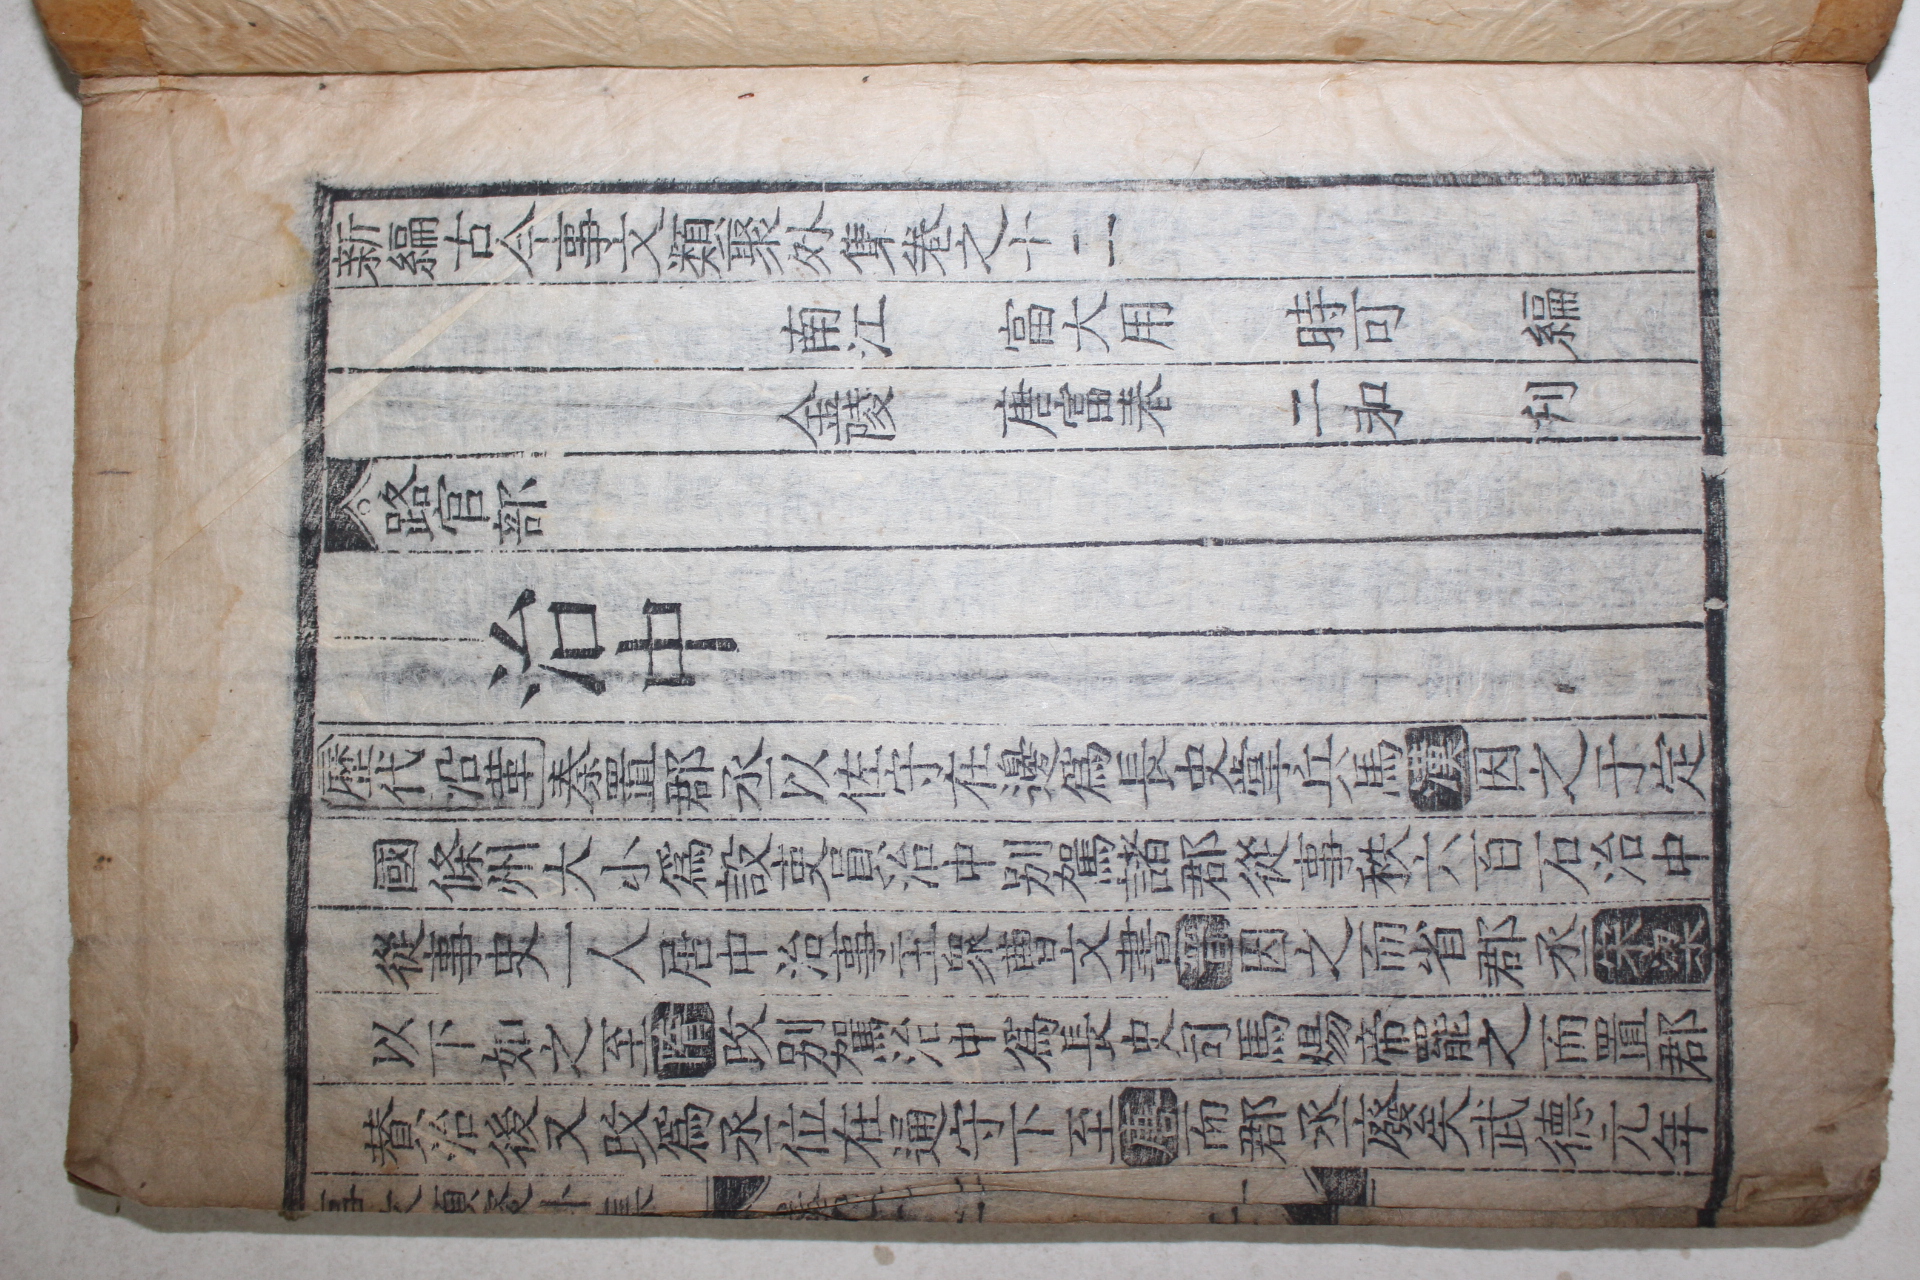 新編古今事文類聚外集卷之十二
南江 富大用 時可 編
金陵 唐富春 二和 刋
路官部
治中
歷代沿革秦置郡丞以佐守在邊爲長史掌兵馬漢因之于定
國條州大小爲設吏員治中別駕諸郡從事秩六百石治中
從事史一人居中治事主衆曹文書晉因之而省郡丞宋梁
以下如之至隋改别駕治中爲長史司馬煬帝罷之而置郡
賛治後又改爲丞位在通守下至唐而郡丞廢矣武德元年
事文類聚外集